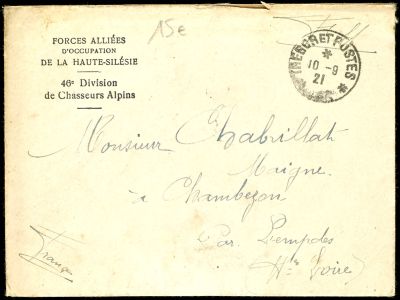 FORCES ALLIÉES
D'OCCUPATION
DE LA HAUTE-SILÉSIE
46e Division
de Chasseurs Alpins
15e
TRESOR ET POSTES
10-9
21
Monsieur Chabrillat
Maigne
à Chambezon
Par Lempdes
Hte Loire
France